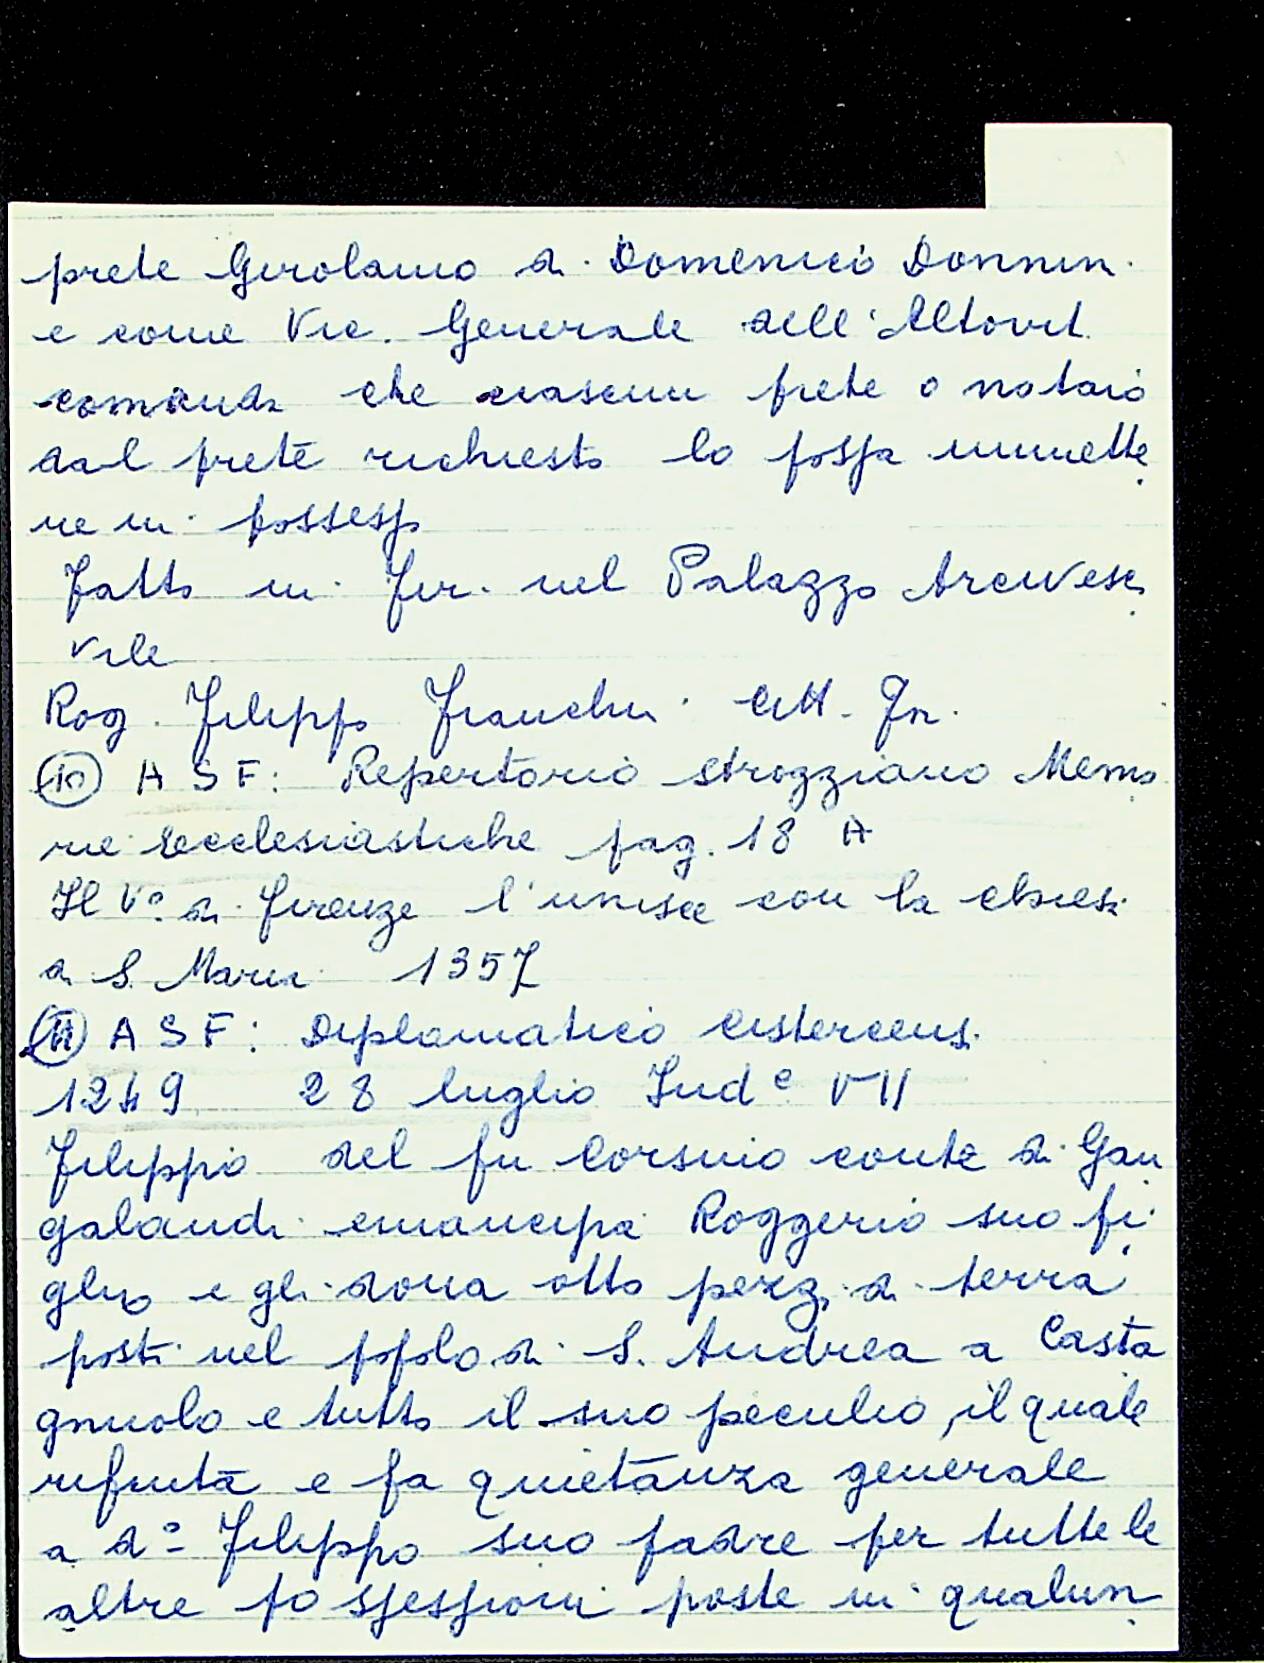 prete Girolamo di Domenico Donnini
e come Vic. Generale dell'Altoviti
comanda che ciascun prete o notaio
dal prete richiesto lo possa immette
re in possesso
Fatto in Fir. nel Palazzo Arcivesco
vile
Rog. Filippo Franchi Citt. Fn.
10 A S F: Repertorio Strozziano Memo
rie Ecclesiastiche pag. 18 A
Il Vo di Firenze l'unisce con la chiesa
di S. Maria 1357
11 A S F: Diplomatico Cistercensi
1249 28 luglio Ind e VII
Filippo del fu Corsino conte di Gan
galandi emancipa Roggerio suo fi
glio e gli dona otto pezzi di terra
posti nel popolo di S. Andrea a Casta
gnuolo e tutto il suo peculio, il quale
rifiuta e fa quietanza generale
a do Filippo suo padre per tutte le
altre possessioni poste in qualun